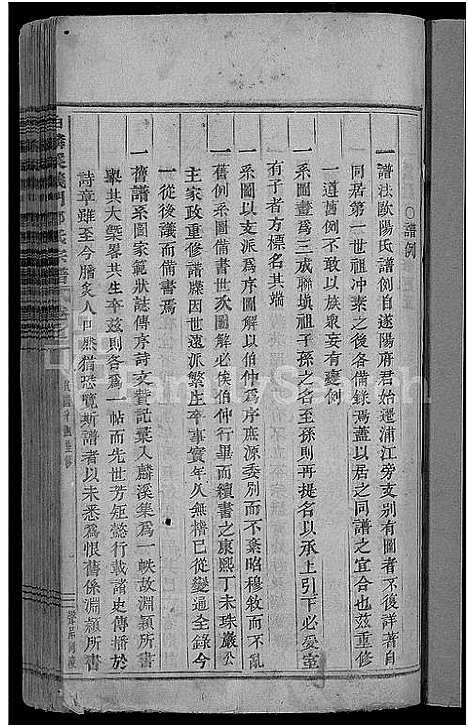 ○譜例
一譜法歐陽氏譜例自遂陽府君始遷浦江旁支別有圖者不復詳著自
同居第一世祖冲素之後各備錄焉蓋以居之同譜之宜合也茲重修
一遵舊例不敢以族衆妄有褒例
一系圖畫為三成聯塡祖子孫之名至孫則再提名以承上引下必爰室
有子者方標名其端
一系圖以支派為序圖解以伯仲為序庶源委別而不紊昭穆敘而不亂
一舊例系圖備書世次圖解必俟伯仲行畢而續書之康熙丁未珠巖公
主家政重修譜牒因世遠派繁庄卒事實年久無稽已從變通全錄今
一從後議而備書焉
一舊譜系圖家範狀誌傳序詩文暫記葉入麟溪集為一帙故淵穎所書
舉其大槩畧共生卒茲則各為一帖而先世芳矩懿行載諸史傳播於
詩章雖至今膾炙人口然猶恐覽斯譜者以未悉為恨舊係淵穎所書
義門鄭氏宗譜